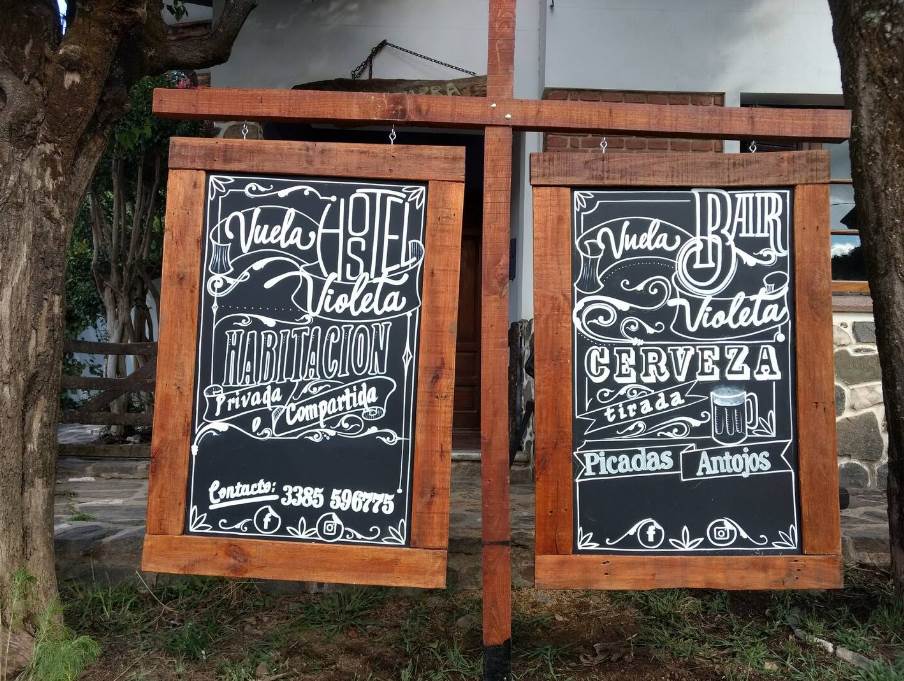 Vuela HOSTEL
Violeta
HABITACION
Privada
Compartida
Contacto: 3385 596775
Vuela BAR
Violeta
CERVEZA
tirada
Picadas Antojos